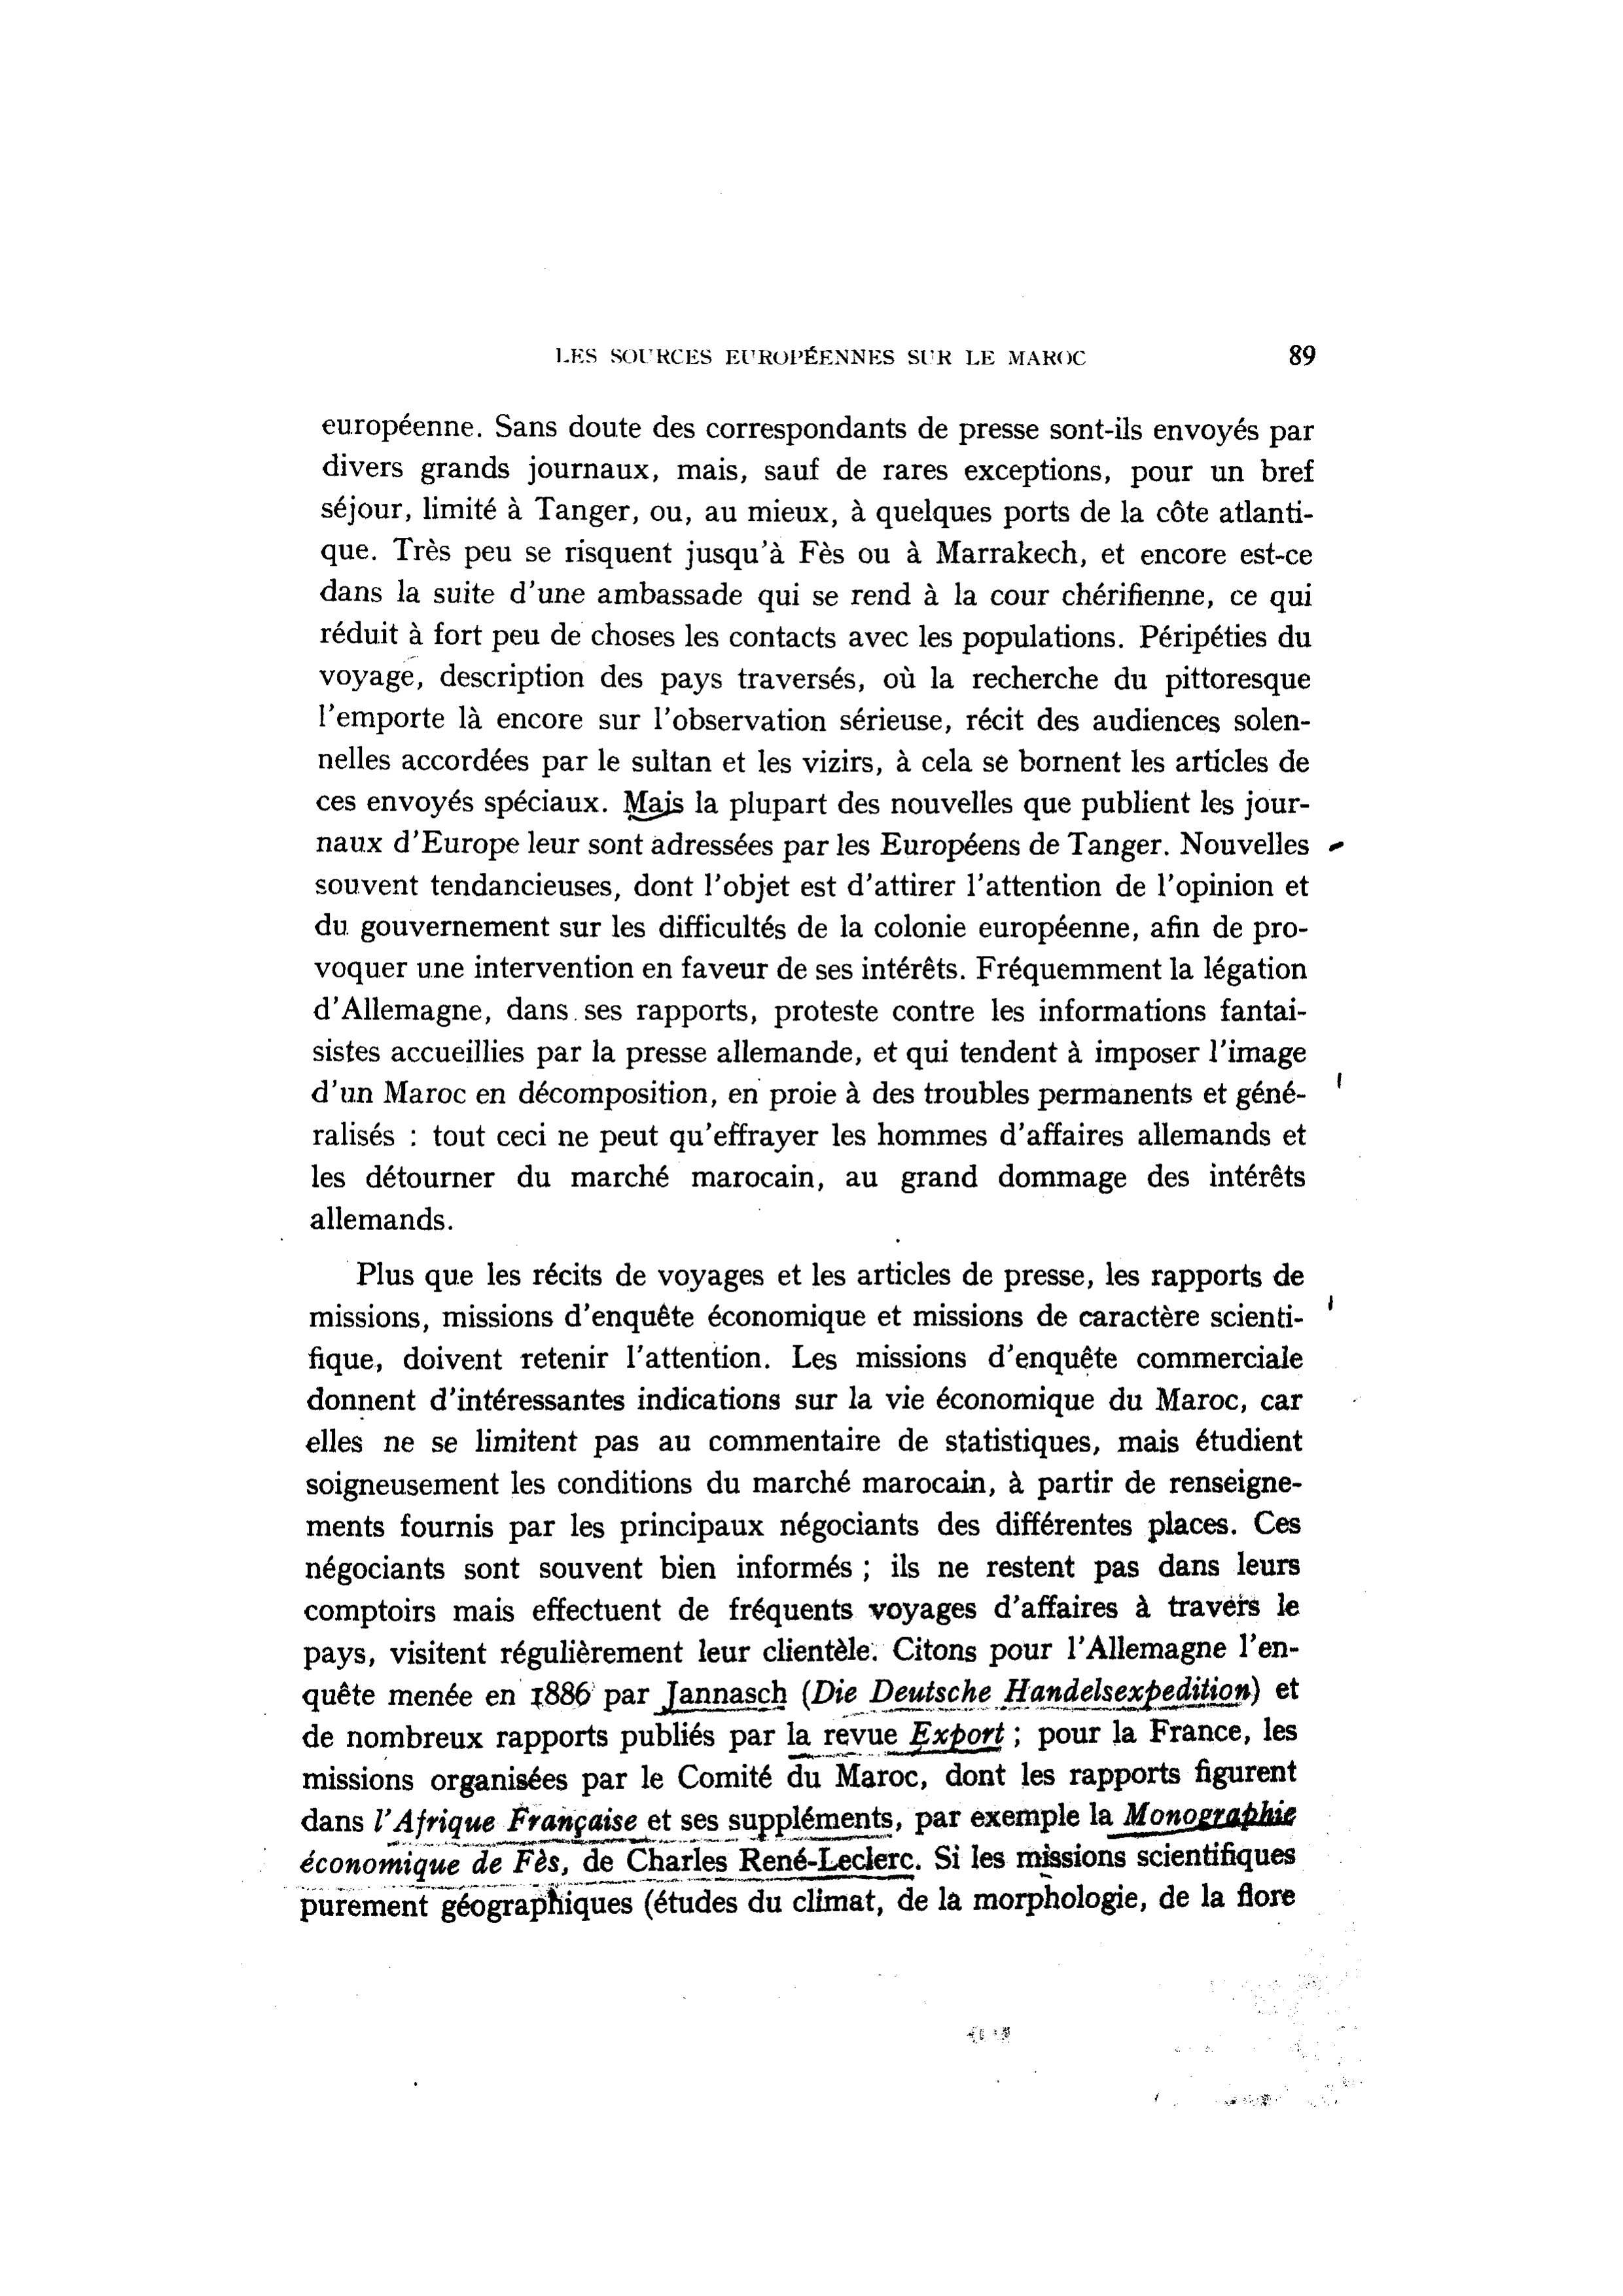 LES SOURCES EUROPÉENNES SUR LE MAROC 89
européenne. Sans doute des correspondants de presse sont-ils envoyés par
divers grands journaux, mais, sauf de rares exceptions, pour un bref
séjour, limité à Tanger, ou, au mieux, à quelques ports de la côte atlanti-
que. Très peu se risquent jusqu'à Fès ou à Marrakech, et encore est-ce
dans la suite d'une ambassade qui se rend à la cour chérifienne, ce qui
réduit à fort peu de choses les contacts avec les populations. Péripéties du
voyage, description des pays traversés, où la recherche du pittoresque
l'emporte là encore sur l'observation sérieuse, récit des audiences solen-
nelles accordées par le sultan et les vizirs, à cela se bornent les articles de
ces envoyés spéciaux. Mais la plupart des nouvelles que publient les jour-
naux d'Europe leur sont adressées par les Européens de Tanger. Nouvelles
souvent tendancieuses, dont l'objet est d'attirer l'attention de l'opinion et
du gouvernement sur les difficultés de la colonie européenne, afin de pro-
voquer une intervention en faveur de ses intérêts. Fréquemment la légation
d'Allemagne, dans ses rapports, proteste contre les informations fantai-
sistes accueillies par la presse allemande, et qui tendent à imposer l'image
d'un Maroc en décomposition, en proie à des troubles permanents et géné-
ralisés : tout ceci ne peut qu'effrayer les hommes d'affaires allemands et
les détourner du marché marocain, au grand dommage des intérêts
allemands.
Plus que les récits de voyages et les articles de presse, les rapports de
missions, missions d'enquête économique et missions de caractère scienti-
fique, doivent retenir l'attention. Les missions d'enquête commerciale
donnent d'intéressantes indications sur la vie économique du Maroc, car
elles ne se limitent pas au commentaire de statistiques, mais étudient
soigneusement les conditions du marché marocain, à partir de renseigne-
ments fournis par les principaux négociants des différentes places. Ces
négociants sont souvent bien informés ; ils ne restent pas dans leurs
comptoirs mais effectuent de fréquents voyages d'affaires à travers le
pays, visitent régulièrement leur clientèle. Citons pour l'Allemagne l'en-
quête menée en 1886 par Jannasch (Die Deutsche Handelsexpedition) et
de nombreux rapports publiés par la revue Export ; pour la France, les
missions organisées par le Comité du Maroc, dont les rapports figurent
dans l'Afrique Française et ses suppléments, par exemple la Monographie
économique de Fès, de Charles René-Leclerc. Si les missions scientifiques
purement géographiques (études du climat, de la morphologie, de la flore